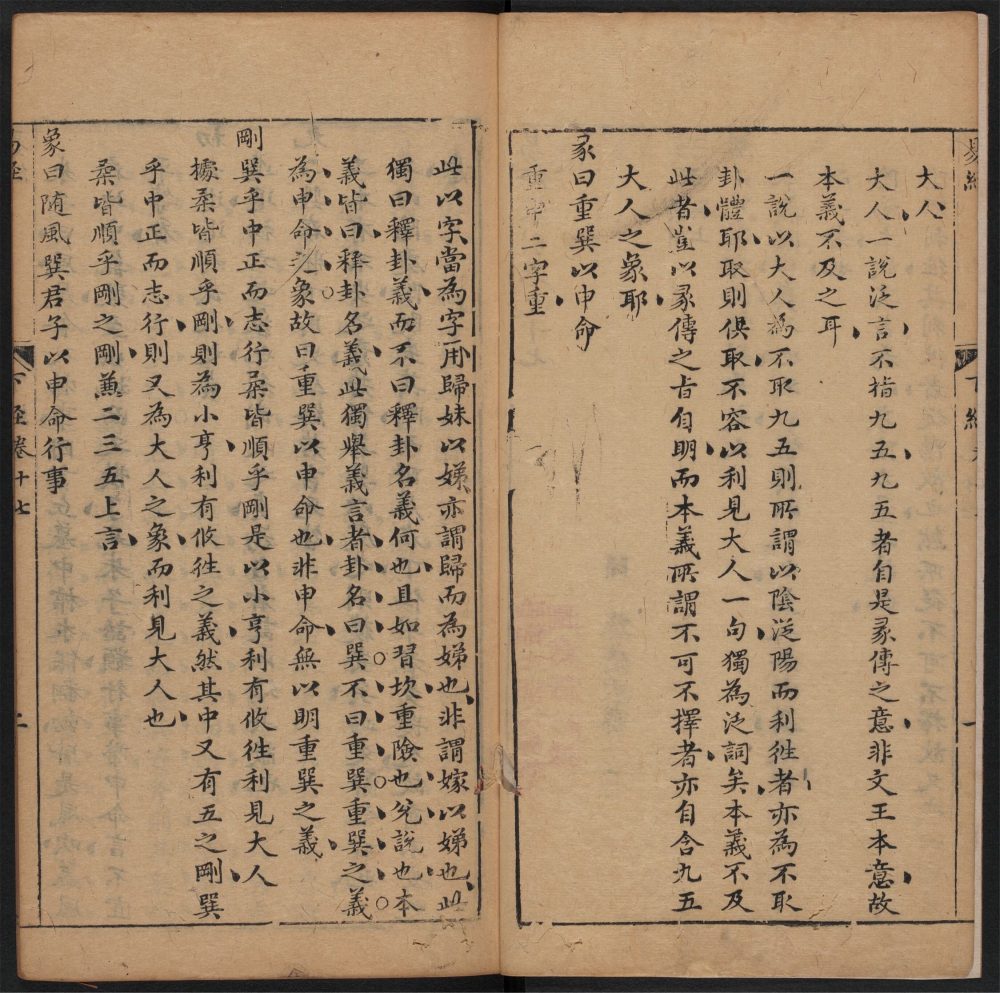 易經
下經
一
大人
大人一說泛言不指九五九五者自是彖傳之意非文王本意故
本義不及之耳
一說以大人為不取九五則所謂以陰從陽而利徃者亦為不取
卦體耶取則俱取不容以利見大人一句獨為泛詞矣本義不及
此者豈以彖傳之旨自明而本義所謂不可不擇者亦自含九五
大人之象耶
彖曰重巽以申命
重申二字重
此以字當為字用歸妹以娣亦謂歸而為娣也非謂嫁以娣也此
獨曰釋卦義而不曰釋卦名義何也且如習坎重險也兌說也本
義皆曰釋卦名義此獨舉義言者卦名曰巽不曰重巽重巽之義
為申命之象故曰重巽以申命也非申命無以明重巽之義
剛巽乎中正而志行柔皆順乎剛是以小亨利有攸徃利見大人
據柔皆順乎剛則為小亨利有攸徃之義然其中又有五之剛巽
乎中正而志行則又為大人之象而利見大人也
柔皆順乎剛之剛兼二三五上言
象曰随風巽君子以申命行事
下經卷十七
二